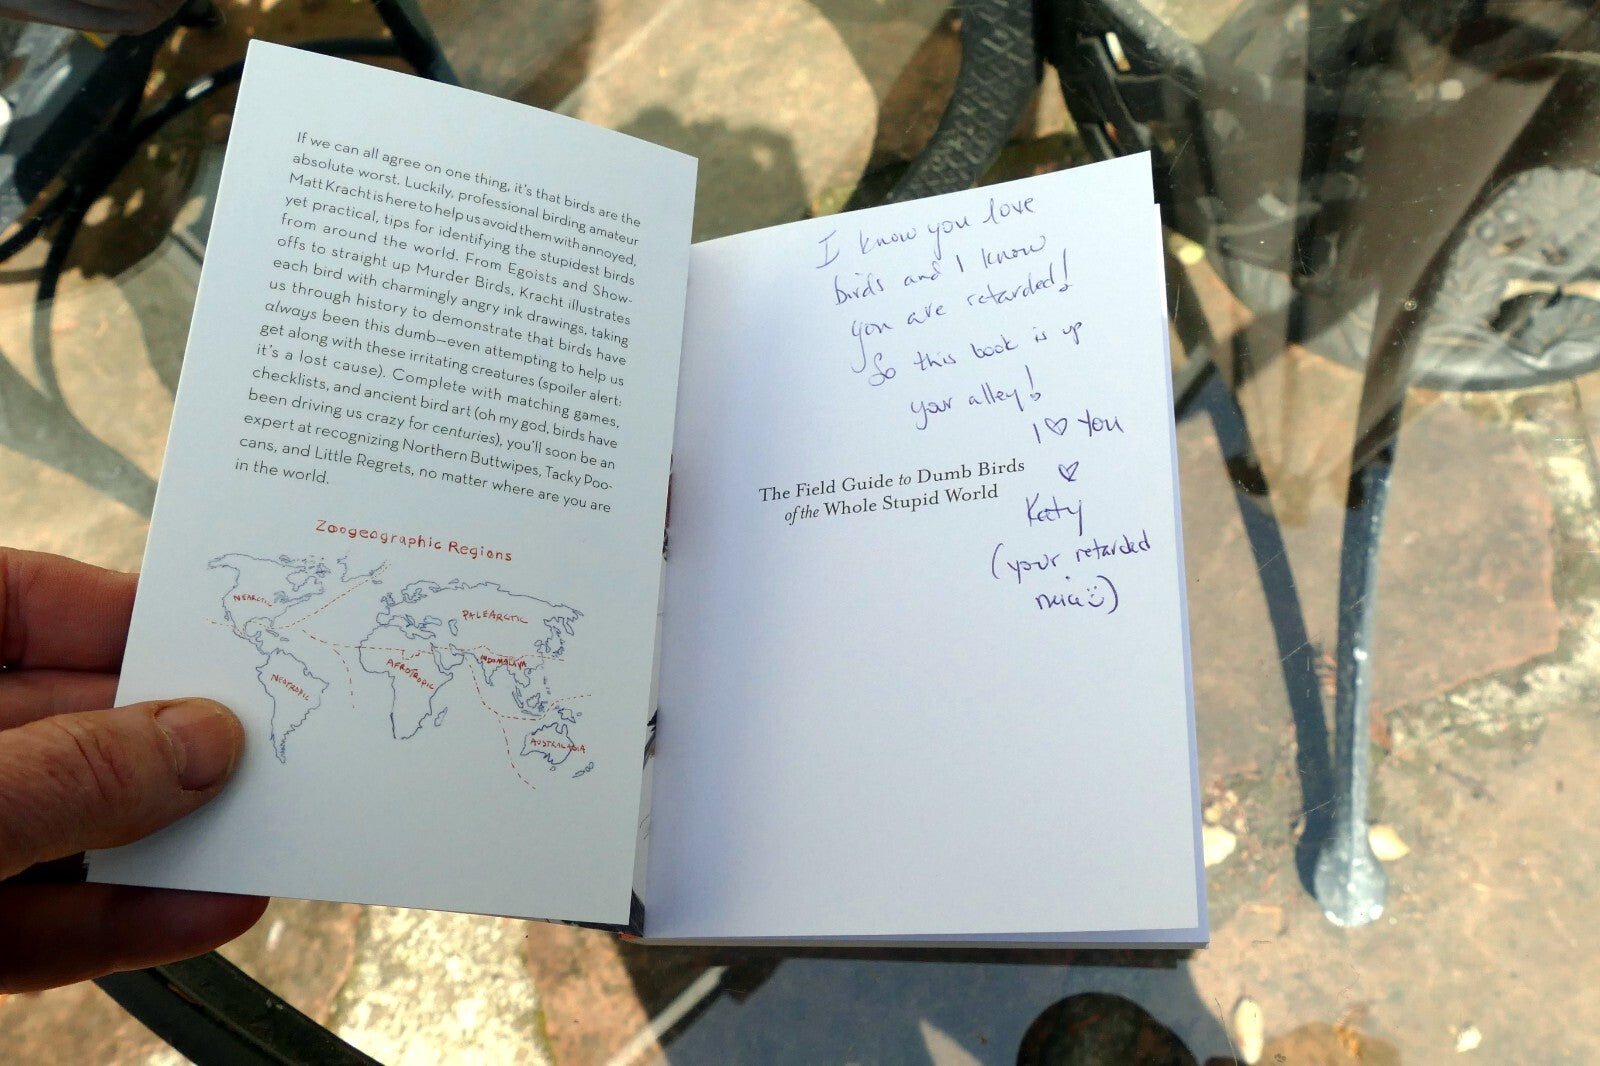 If we can all agree on one thing, it's that birds are the
absolute worst. Luckily, professional birding amateur
Matt Kracht is here to help us avoid them with annoyed,
yet practical, tips for identifying the stupidest birds
from around the world. From Egoists and Show-
offs to straight up Murder Birds, Kracht illustrates
each bird with charmingly angry ink drawings, taking
us through history to demonstrate that birds have
always been this dumb—even attempting to help us
get along with these irritating creatures (spoiler alert:
it's a lost cause). Complete with matching games,
checklists, and ancient bird art (oh my god, birds have
been driving us crazy for centuries), you'll soon be an
expert at recognizing Northern Buttwipes, Tacky Poo-
cans, and Little Regrets, no matter where are you are
in the world.
Zoogeographic Regions
NEARCTIC
PALEARCTIC
INDOMALAYA
AFROTROPIC
NEOTROPIC
AUSTRALASIA
I know you love
birds and I know
you are retarded!
So this book is up
your alley!
I ♡ You
♡
Katy
(your retarded
neice)
The Field Guide to Dumb Birds
of the Whole Stupid World